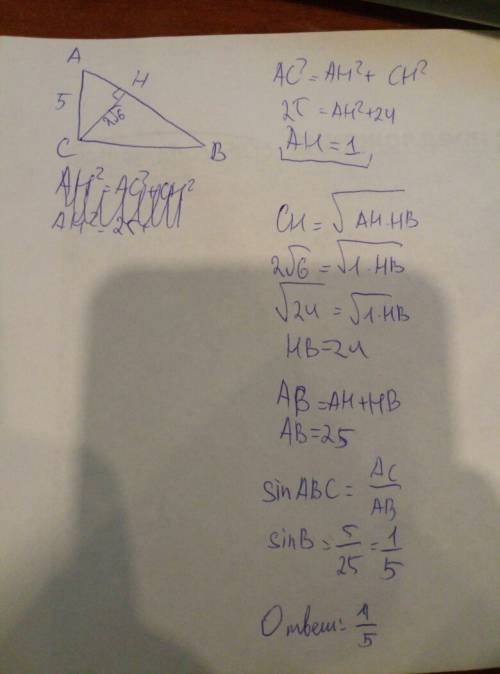 A
H
5
2√6
C
B
AH² = AC² + CH²
AC² = AH² + CH²
25 = AH² + 24
AH = 1
CH = √AH·HB
2√6 = √1·HB
√24 = √1·HB
HB = 24
AB = AH + HB
AB = 25
sin ABC = AC/AB
sin B = 5/25 = 1/5
Ответ: 1/5